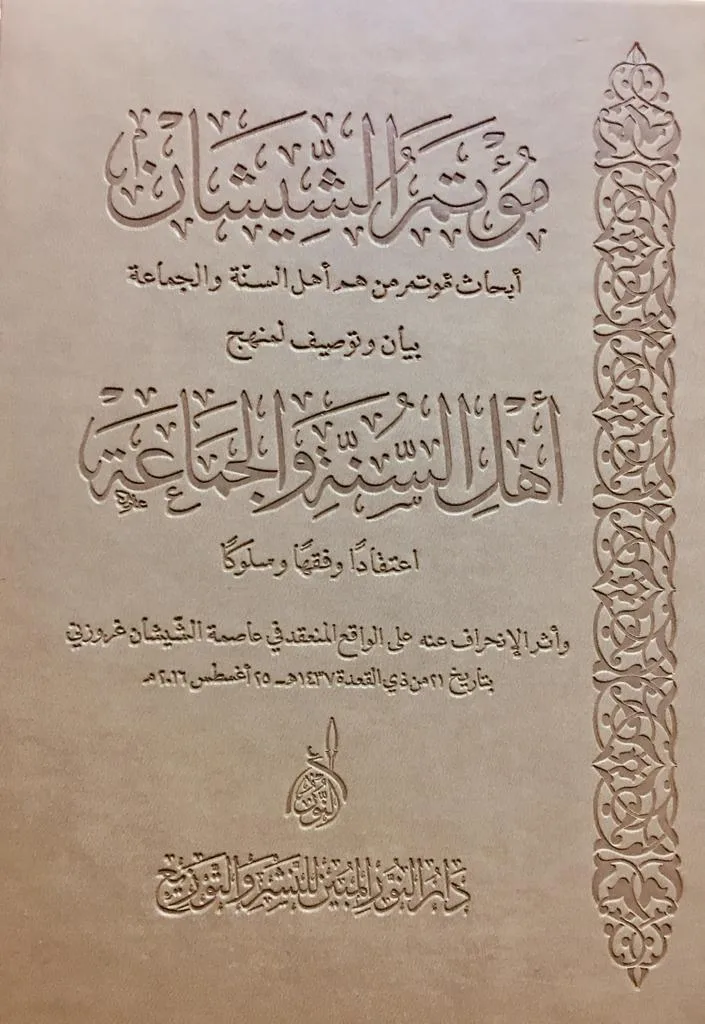 مُؤْتَمَرُ الشِّيشَان
أبحاث مؤتمر من هم أهل السنّة والجماعة
بيان وتوصيف لمنهج
أَهْلِ السُّنَّةِ وَالْجَمَاعَةِ
اعتقادًا وفقهًا وسلوكًا
وأثر الإنحراف عنه على الواقع المنعقد في عاصمة الشّيشان غروزني
بتاريخ ٢١ من ذي القعدة ١٤٣٧هـ ـ ٢٥ أغسطس ٢٠١٦م
النُّور
دَارُ النُّورِ المُبِينِ لِلنَّشْرِ وَالتَّوْزِيعِ